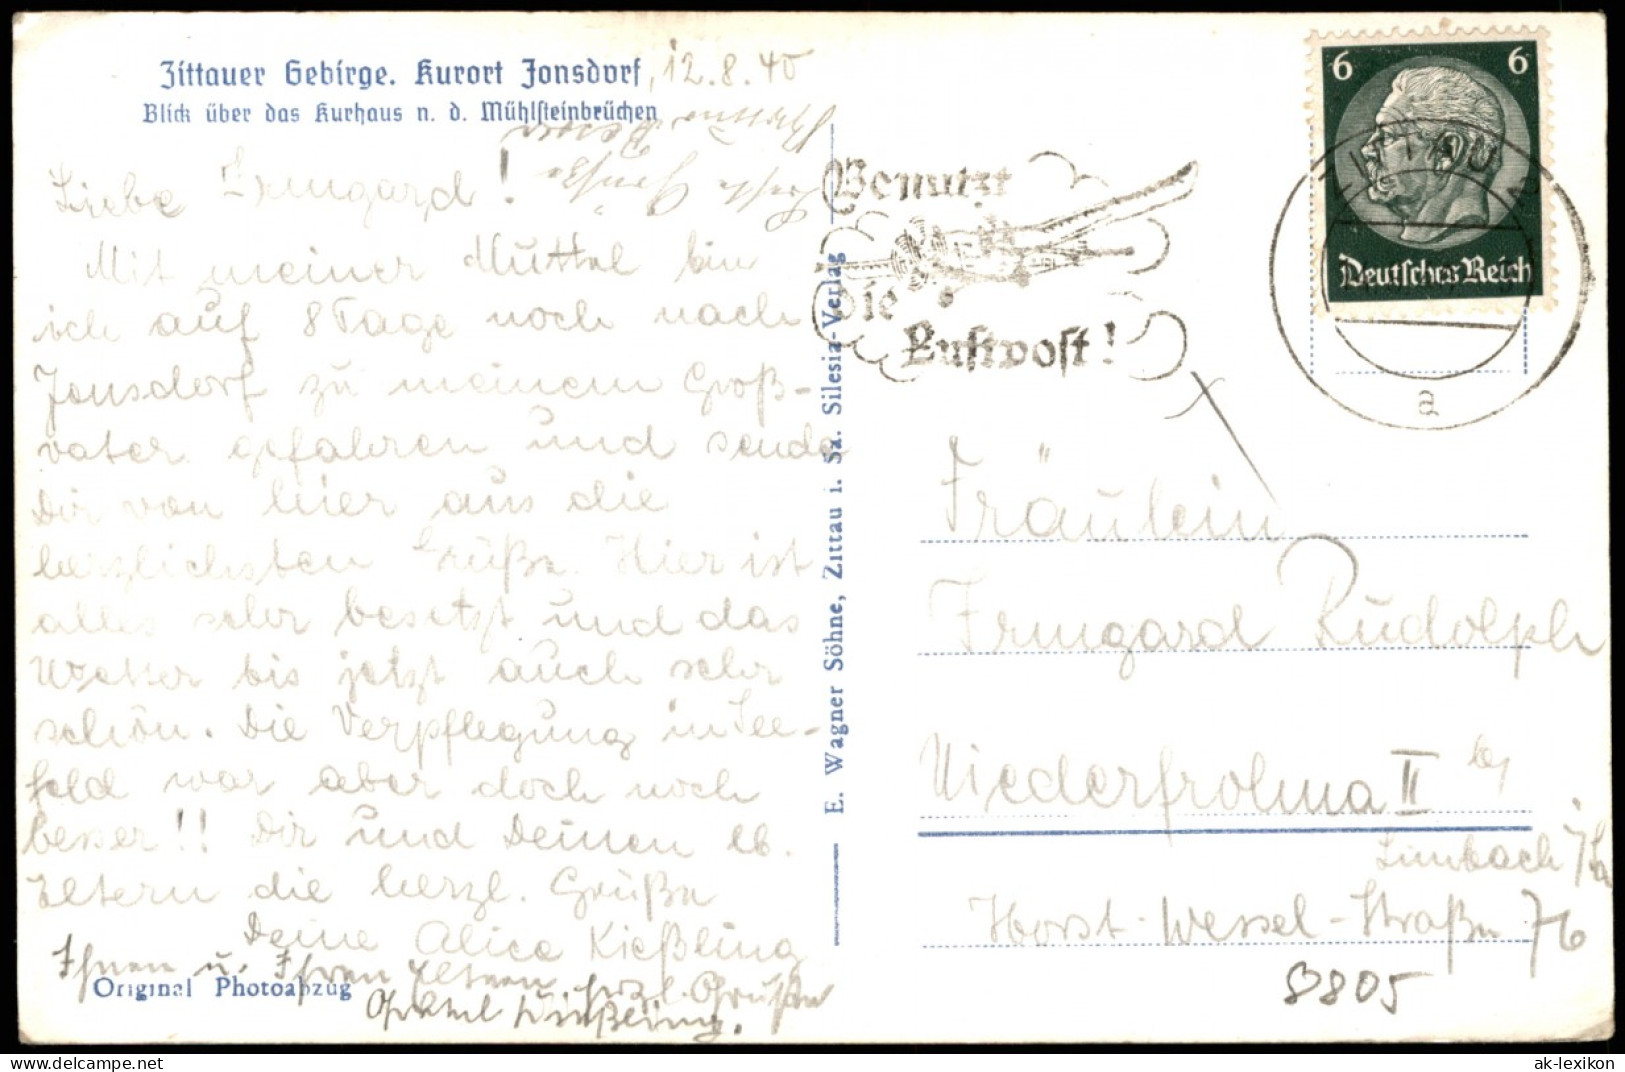 Zittauer Gebirge. Kurort Jonsdorf, 12.8.40
Blick über das Kurhaus n. d. Mühlsteinbrüchen
Liebe Irmgard!
Mit meiner Muttel bin
ich auf 8 Tage noch nach
Jonsdorf zu meinem Groß-
vater gefahren und sende
Dir von hier aus die
herzlichsten Grüße. Hier ist
alles sehr besetzt und das
Wetter bis jetzt auch sehr
schön. Die Verpflegung in See-
feld war aber doch noch
besser!! Dir und Deinen lb.
Eltern die herzl. Grüße
Deine Alice Kießling
Ihnen u. Ihren Eltern herzl. Grüße
Kießling.
Original Photoabzug
Grüße
E. Wagner Söhne, Zittau i. Sa. Silesia-Verlag
Benutzt
die
Luftpost!
6 6
Deutsches Reich
ZITTAU 2
a
Fräulein
Irmgard Rudolph
Niederfrohna II b/
Limbach /Sa
Horst-Wessel-Straße 76
8805
www.delcampe.net
ak-lexikon